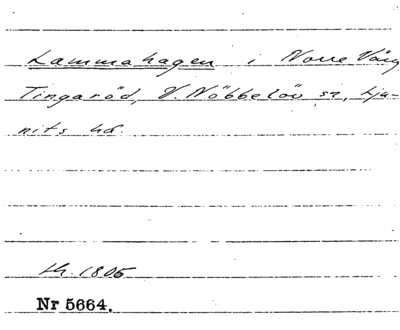 Lammahagen i Norre Vång
Tingaröd, V. Nöbbelöv sn, Lju-
nits hd.
lh. 1805
Nr 5664.